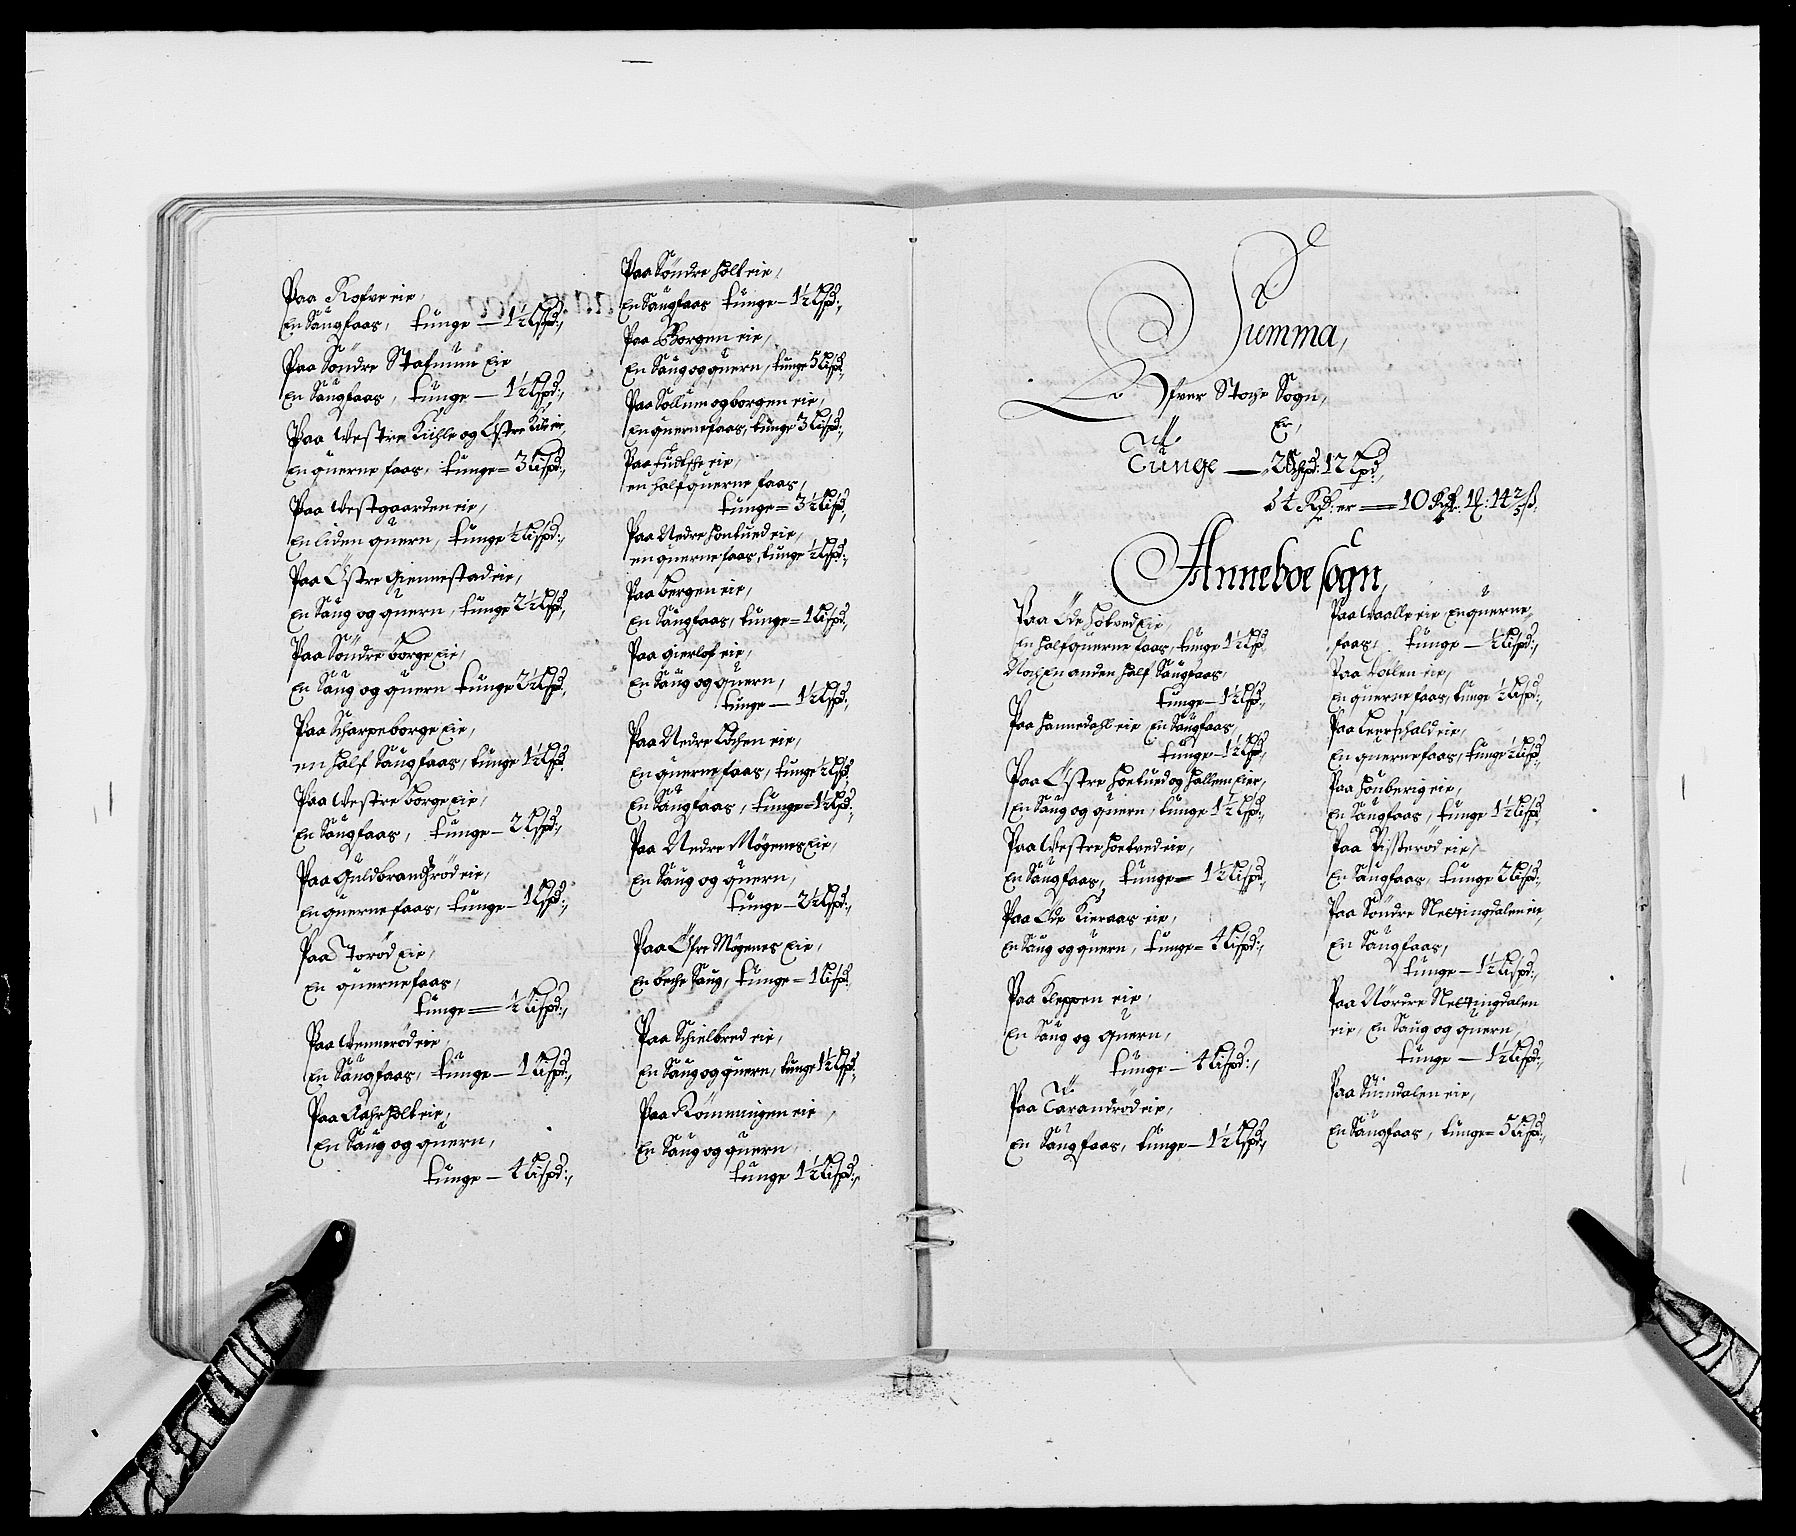 Paa Rofve eie,
En Saugfaas, tunge — 1½ Lispd:,
Paa Söndre Stafnum Eie
En Saugfaas, tunge — 1½ Lispd:,
Paa Westre Kihle og Östre Kile eie,
En querne faas, tunge = 3 Lispd:,
Paa Westgaarden eie,
En liden quern, tunge ½ Lispd:,
Paa Östre Giennestad eie,
En Saug og quern, tunge 2½ Lispd,
Paa Söndre Borge Eie,
En Saug og quern tunge 2½ Lispd,
Paa Scharpeborge Eie,
en half Saugfaas, tunge 1½ Lispd
Paa Westre Borge Eie,
En Saugfaas, tunge — 2 Lispd:,
Paa Guldbrandsröd eie,
En querne faas, tunge — 1 Lispd:,
Paa Toröd Eie,
En quernefaas,
tunge = ½ Lispd:,
Paa Wenneröd eie,
En Saugfaas, tunge — 1 Lispd:,
Paa Aahrholt eie,
En Saug og quern,
tunge — 4 Lispd:,
Paa Söndre holt eie,
En Saugfaas tunge — 1½ Lispd:,
Paa Borgen eie,
En Saug og quern, tunge 5 Lispd:,
Paa Sollum og borgen eie,
En quernefaas, tunge 3 Lispd:,
Paa eie,
en half querne faas,
tunge = 3½ Lispd,
Paa Nedre hontued eie,
en querne faas, tunge ½ Lispd:,
Paa Bergen eie,
En Saugfaas, tunge = 1 Lispd:,
Paa gierlof eie,
En Saug og quern,
tunge — 1½ Lispd:,
Paa Nedre Löchen eie,
En quernefaas, tunge ½ Lispd
En Saugfaas, tunge = 1½ Lispd:,
Paa Nedre Mögenes Eie,
En Saug og quern,
tunge — 2½ Lispd:,
Paa Öfre Mögenes Eie,
En beche Saug, tunge = 1 Lispd
Paa Schielbred eie,
En Saug og quern, tunge 1½ Lispd:,
Paa Römmingen eie,
En Saug og quern,
tunge 1½ Lispd:,
Summa,
Ofver Stoche Sogn,
Er,
Tunge — 2 Schpd: 12 Lpd,
à 4 Rdr: er = 10 Rdr. 1 : 14 2/5 ß.
Anneboe sogn,
Paa Öde hotved Eie,
En half querne faas, tunge 1½ Lispd
Noch En anden half Saugfaas,
tunge — 1½ Lispd:,
Paa hannedahl eie En Saugfaas,
tunge — 1½ Lispd,
Paa Östre hoetued og hallem Eier,
En Saug og quern, tunge 1½ Lispd:,
Paa Westre hoetved eie,
En Saugfaas, tunge = 1½ Lispd:,
Paa Öde Kieraas eie,
En Saug og quern, tunge = 4 Lispd:,
Paa Kleppen eie,
En Saug og quern,
tunge — 4 Lispd:,
Paa Tarandröd eie,
En Saugfaas, tunge — 1½ Lispd:,
Paa Waalle eie En querne
faas, tunge — ½ Lispd:,
Paa eie,
En quernefaas, tunge ½ Lispd:,
Paa Leerschald eie,
En quernefaas, tunge ½ Lispd,
Paa houberig eie,
En Saugfaas, tunge 1½ Lispd,
Paa Pisseröd eie,
En Saugfaas, tunge 2 Lispd:,
Paa Söndre Nettingdalen eie,
En Saugfaas,
tunge — 1½ Lispd:,
Paa Nördre Nettingdalen
eie, En Saug og quern,
tunge — 1½ Lispd:,
Paa Suindalen eie,
En Saugfaas, tunge = 5 Lispd:,